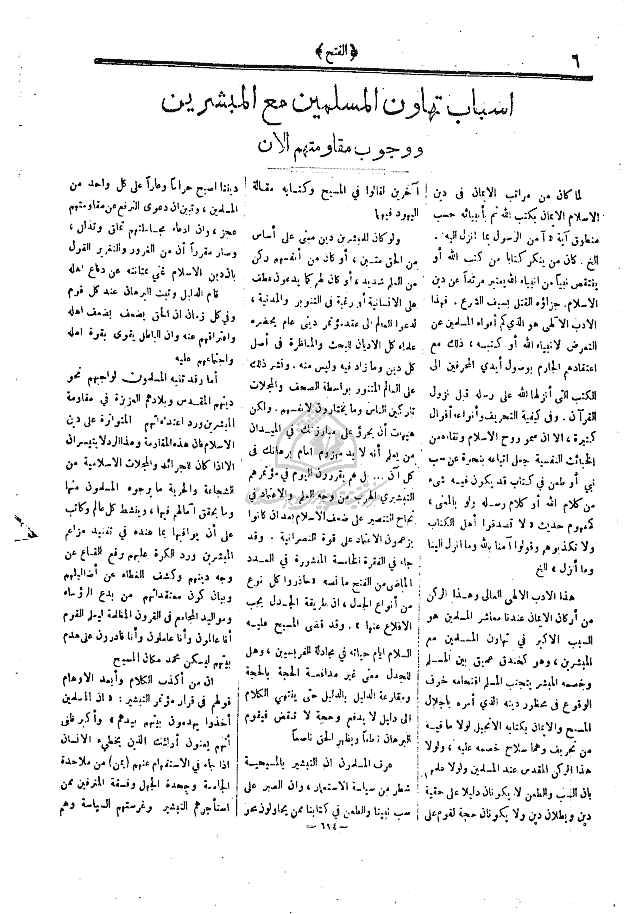 ٦
﴿ الفتح ﴾
اسباب تهاون المسلمين مع المبشرين
ووجوب مقاومتهم الآن
لما كان من مراتب الايمان فى دين
الاسلام الايمان بكتب الله ثم بأنبيائه حسب
منطوق آية « آمن الرسول بما انزل اليه .
الخ . كان من ينكر كتابا من كتب الله أو
ينتقص نبياً من انبياء الله يعتبر مرتداً عن دين
الاسلام . جزاؤه القتل بسيف الشرع . فهذا
الادب الالهى هو الذى كم أفواه المسلمين عن
التعرض لانبياء الله أو كتبه ، ذلك مع
اعتقادهم الجازم بوصول أيدي المحرفين الى
الكتب التى أنزلها الله على رسله قبل نزول
القرآن . وفى كيفية التحريف وأنواعه أقوال
كثيرة ، الا ان سمو روح الاسلام ونقاءه من
الخبائث النفسية جعل اتباعه بنجوة عن سب
نبي أو طعن في كتاب قد يكون فيه شىء
من كلام الله أو كلام رسله ولو بالمعنى ،
كمفهوم حديث « لا تصدقوا أهل الكتاب
ولا تكذبوهم وقولوا آمنا بالله وما انزل الينا
وما أنزل » الخ
هذا الادب الالهى العالى وهذا الركن
من أركان الايمان عندنا معاشر المسلمين هو
السبب الاكبر في تهاون المسلمين مع
المبشرين ، وهو كخندق عميق بين المسلم
وخصمه المبشر يتجنب المسلم اقتحامه خوف
الوقوع فى محظور دينه الذي أمره باجلال
المسيح والايمان بكتابه الانجيل لولا ما فيه
من تحريف وهما سلاح خصمه عليه ، ولولا
هذا الركن المقدس عند المسلمين ولولا علمهم
بان السب والطعن لا يكونان دليلا على حقية
دين وبطلان دين ولا يكونان حجة لقوم على
آخرين لقالوا في المسيح وكتابه مقالة
اليهود فيهما
ولو كان للمبشرين دين مبني على أساس
من الحق متين ، أو كان من أنفسهم ركن
من العلم شديد ، أو كان لهم كما يدعون عطف
على الانسانية أو رغبة في التنوير والمدنية ،
لدعوا العالم الى عقد مؤتمر ديني عام يحضره
علماء كل الاديان للبحث والمناظرة في أصل
كل دين وما زاد فيه وليس منه . ونشر ذلك
على العالم المتنور بواسطة الصحف والمجلات
تاركين الناس وما يختارون لانفسهم . ولكن
هيهات أن يجرؤ على مبارزتك في الميدان
من يعلم أنه لا بد مهزوم امام برهانك في
كل آن ... بل هم يقررون اليوم في مؤتمرهم
التبشيري الهرب من وجه العلم والاعتماد في
نجاح التنصير على ضعف الاسلام بعد ان كانوا
يزعمون الاعتماد على قوة النصرانية . وقد
جاء في الفقرة الخامسة المنشورة في العدد
الماضى من الفتح ما نصه « حاذروا كل نوع
من أنواع الجدل ، ان طريقة الجدل يجب
الاقلاع عنها » . وقد قضى المسيح عليه
السلام أيام حياته في مجادلة الفريسيين ، وهل
للجدل معنى غير مدافعة الحجة بالحجة
ومقارعة الدليل بالدليل حتى ينتهي الكلام
الى دليل لا يدفع وحجة لا تنقض فيقوم
البرهان قطعاً ويظهر الحق ناصعاً
عرف المسلمون ان التبشير بالمسيحية
شطر من سياسة الاستعمار ، وان الصبر على
سب نبينا والطعن في كتابنا ممن يحاولون محو
ديننا اصبح حراماً وعاراً على كل واحد من
المسلمين ، وتبين ان دعوى الترفع عن مقاومتهم
عجز ، وان ادعاء مجاملتهم تملق وتذلل ،
وصار مقرراً أن من الغرور والتغرير القول
بان دين الاسلام غني بمتانته عن دفاع اهله
قام الدليل وثبت البرهان عند كل قوم
وفي كل زمان ان الحق يضعف بضعف اهله
وافتراقهم عنه وان الباطل يقوى بقوة اهله
واجتماعهم عليه
أما وقد تنبه المسلمون لواجبهم نحو
دينهم المقدس وبلادهم العزيزة في مقاومة
المبشرين ورد اعتداءاتهم المتواترة على دين
الاسلام فان هذه المقاومة وهذا الرد لا يتيسران
الا اذا كان للجرائد والمجلات الاسلامية من
الشجاعة والحرية ما يرجوه المسلمون منها
وما يحقق آمالهم فيها ، وينشط كل عالم وكاتب
على أن يوافيها بما عنده في تفنيد مزاعم
المبشرين ورد الكرة عليهم برفع القناع عن
وجه دينهم وكشف الغطاء عن أضاليلهم
وبيان كون معتقداتهم من بدع الرؤساء
ومواليد المجامع في القرون المظلمة ليعلم القوم
أنا عالمون وأنا عاملون وأنا قادرون على هدم
بيتهم ليسكن محمد مكان المسيح
ان من أكذب الكلام وأبعد الاوهام
قولهم في قرار مؤتمر التبشير : « ان المسلمين
أخذوا يهدمون بيتهم بيدهم » وأكبر ظني
أنهم يعنون أولئك الذين يخطىء الانسان
اذا جاء في الاستفهام عنهم (بمن) من ملاحدة
الجامعة وجحدة الجهل وفسقة المترفين ممن
استأجرهم التبشير وغرستهم السياسة وهم
— ٦١٤ —